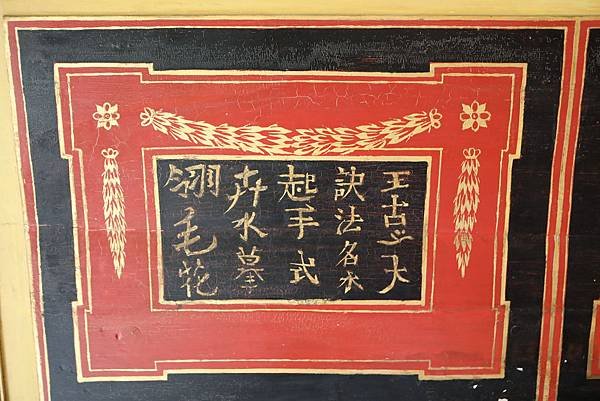 王古之大
訣法名木
起手式
卉水摹
翎毛花